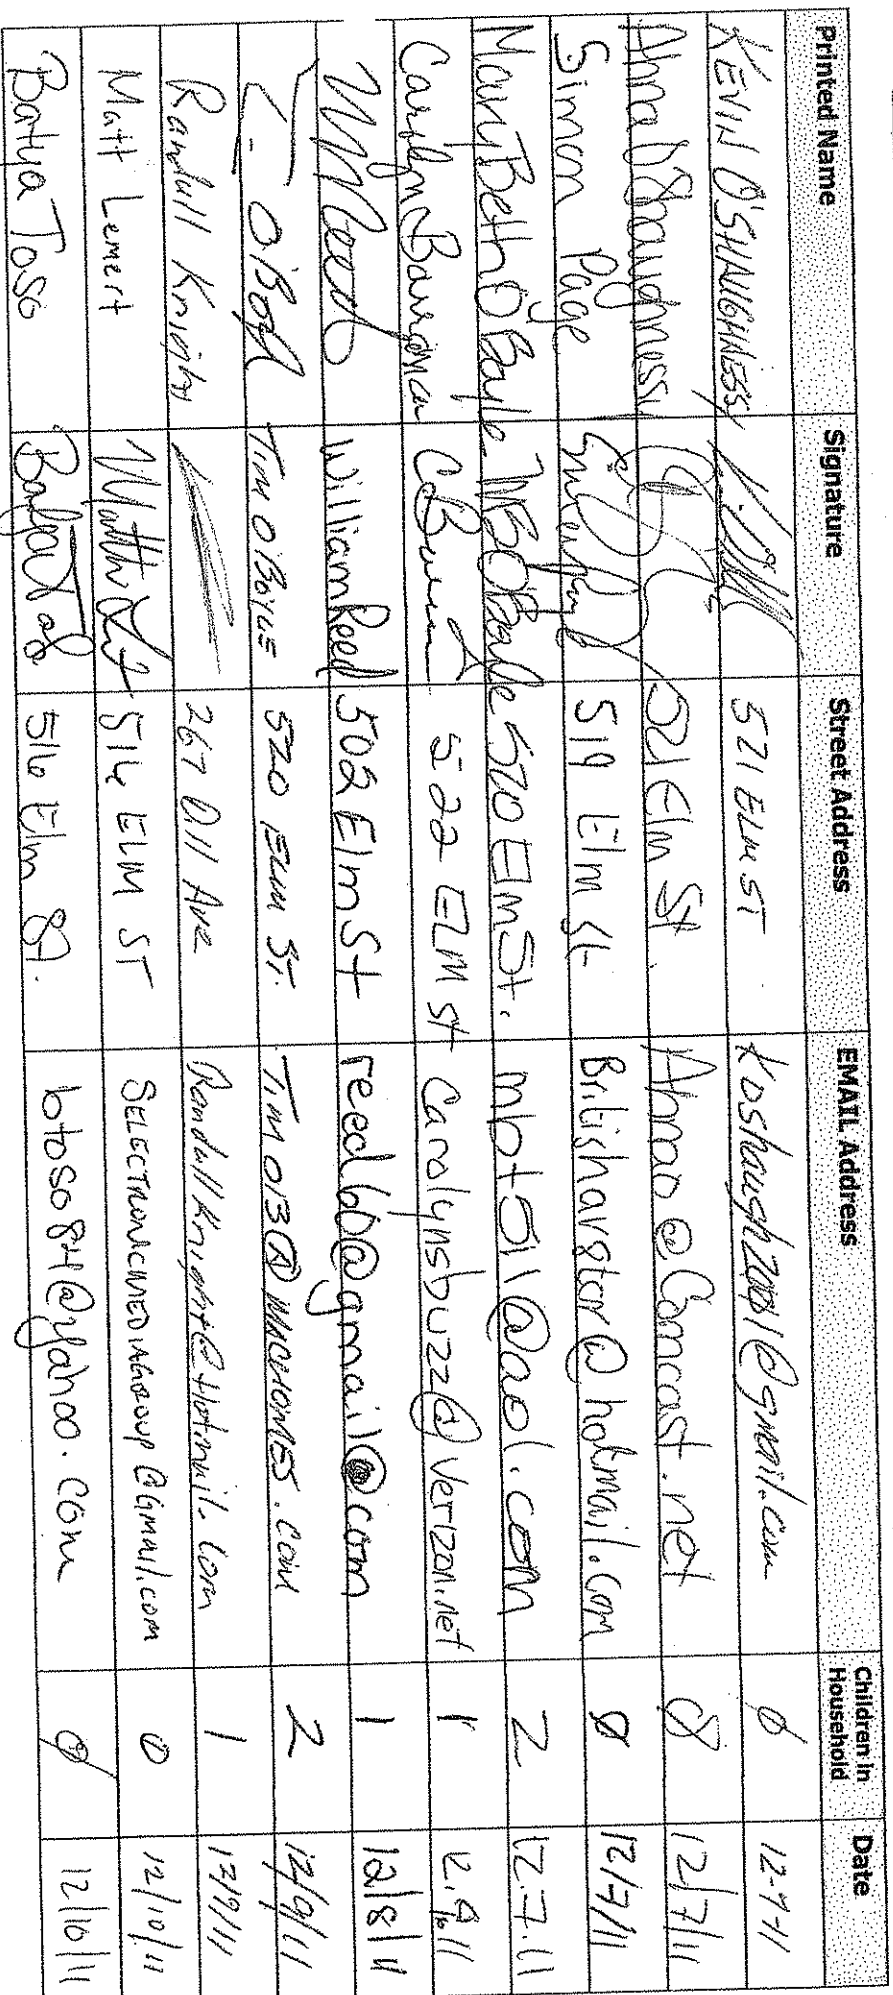 Printed Name Signature Street Address EMAIL Address Children in Household Date
KEVIN O'SHAUGHNESSY 521 ELM ST Koshaugh2001@gmail.com 0 12-7-11
O'Shaughnessy 521 Elm St. @Comcast.net 0 12/7/11
Simon Page 519 Elm St Britishavgtor@hotmail.com 0 12/7/11
Mary Beth O'Boyle MBO'Boyle 520 Elm St. mbt511@aol.com 2 12.7.11
Carolyn 522 ELM St Carolynsbuzz@verizon.net 1 12.9.11
William Reed 502 Elm St reed60@gmail.com 1 12/8/11
T- O'Boyle TIM O'BOYLE 520 ELM ST. TIMOB@MACHOMES.COM 2 12/9/11
Randall Knight 267 Ave RandallKnight@Hotmail.com 1 12/9/11
Matt Lemert 516 ELM ST SELECTRONICMEDIAGROUP@gmail.com 0 12/10/11
Toso 516 Elm St. btoso84@yahoo.com 0 12/10/11